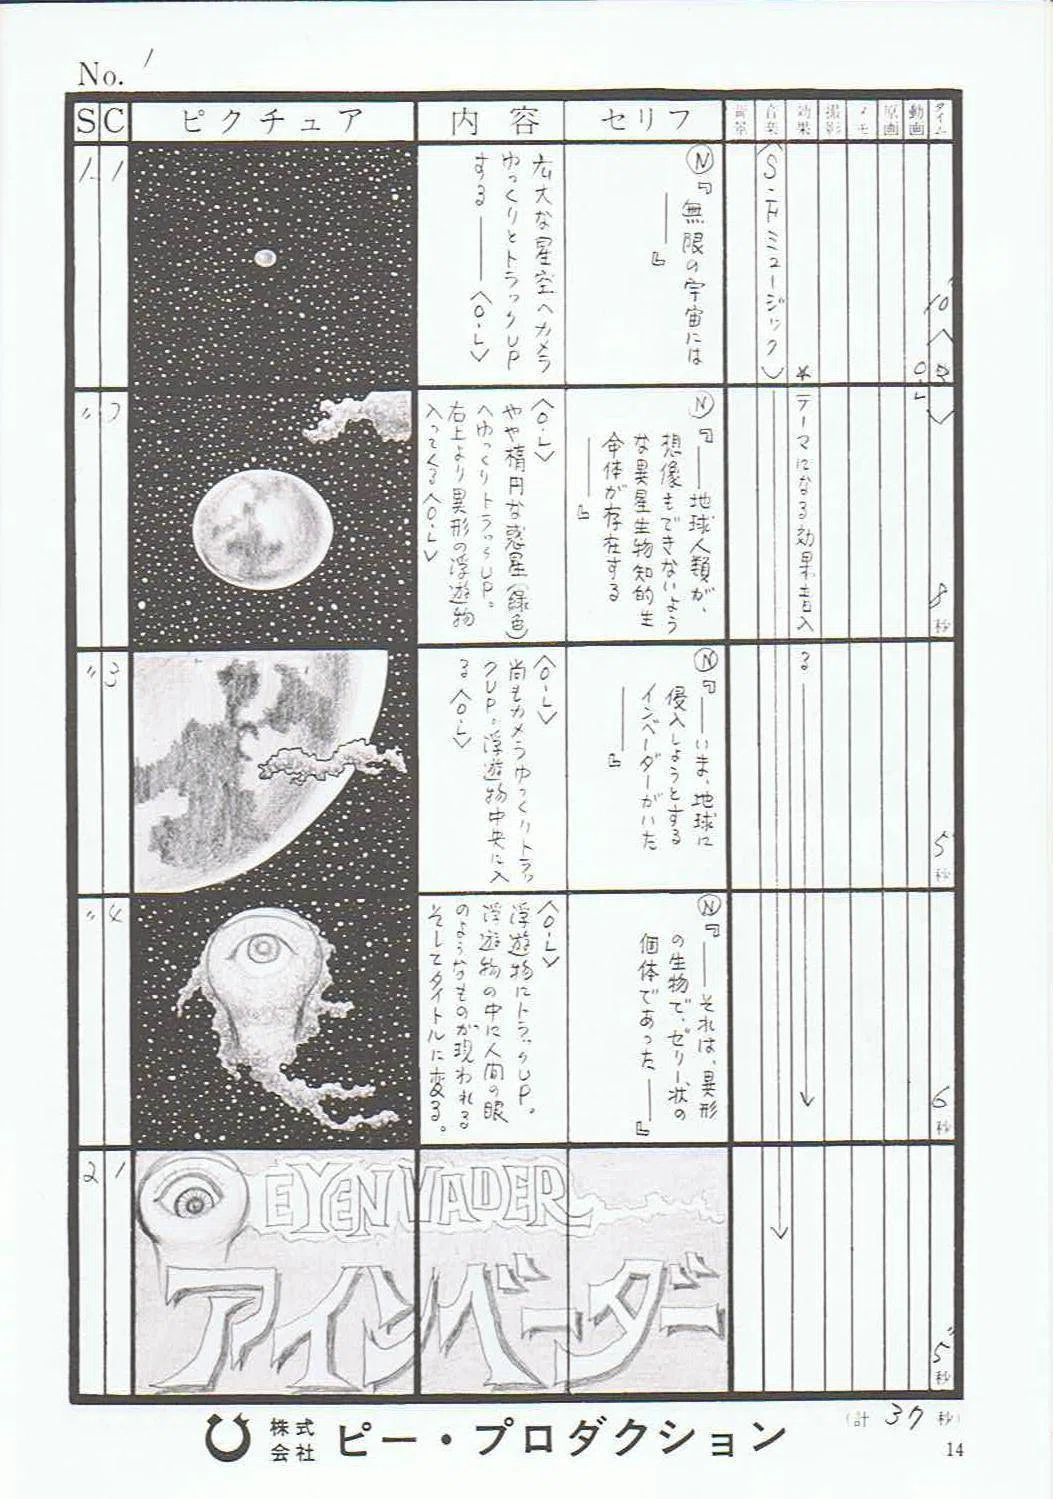 No. 1
S C ピクチュア 内容 セリフ 音楽 効果 撮影 メモ 原画 動画 タイム
1 1
広大な星空へカメラ
ゆっくりとトラックUP
する――〈O・L〉
Ⓝ『無限の宇宙には
――』
〈S・Fミュージック〉
10
O・L
〃 2
〈O・L〉
やや楕円な惑星(緑色)
へゆっくりトラックUP。
右上より異形の浮遊物
入ってくる〈O・L〉
Ⓝ『――地球人類が、
想像もできないよう
な異星生物知的生
命体が存在する
――』
*テーマになる効果音入
る
8秒
〃 3
〈O・L〉
尚もカメラゆっくりトラッ
クUP。浮遊物中央に入
る〈O・L〉
Ⓝ『――いま、地球に
侵入しようとする
インベーダーがいた
――』
5秒
〃 4
〈O・L〉
浮遊物にトラックUP。
浮遊物の中に人間の眼
のようなものが現われる
そしてタイトルに変る。
Ⓝ『――それは、異形
の生物で、ゼリー状の
個体であった――』
6秒
2 1
EYENVADER
アインベーダー
5秒
(計 37秒)
株式会社 ピー・プロダクション
14